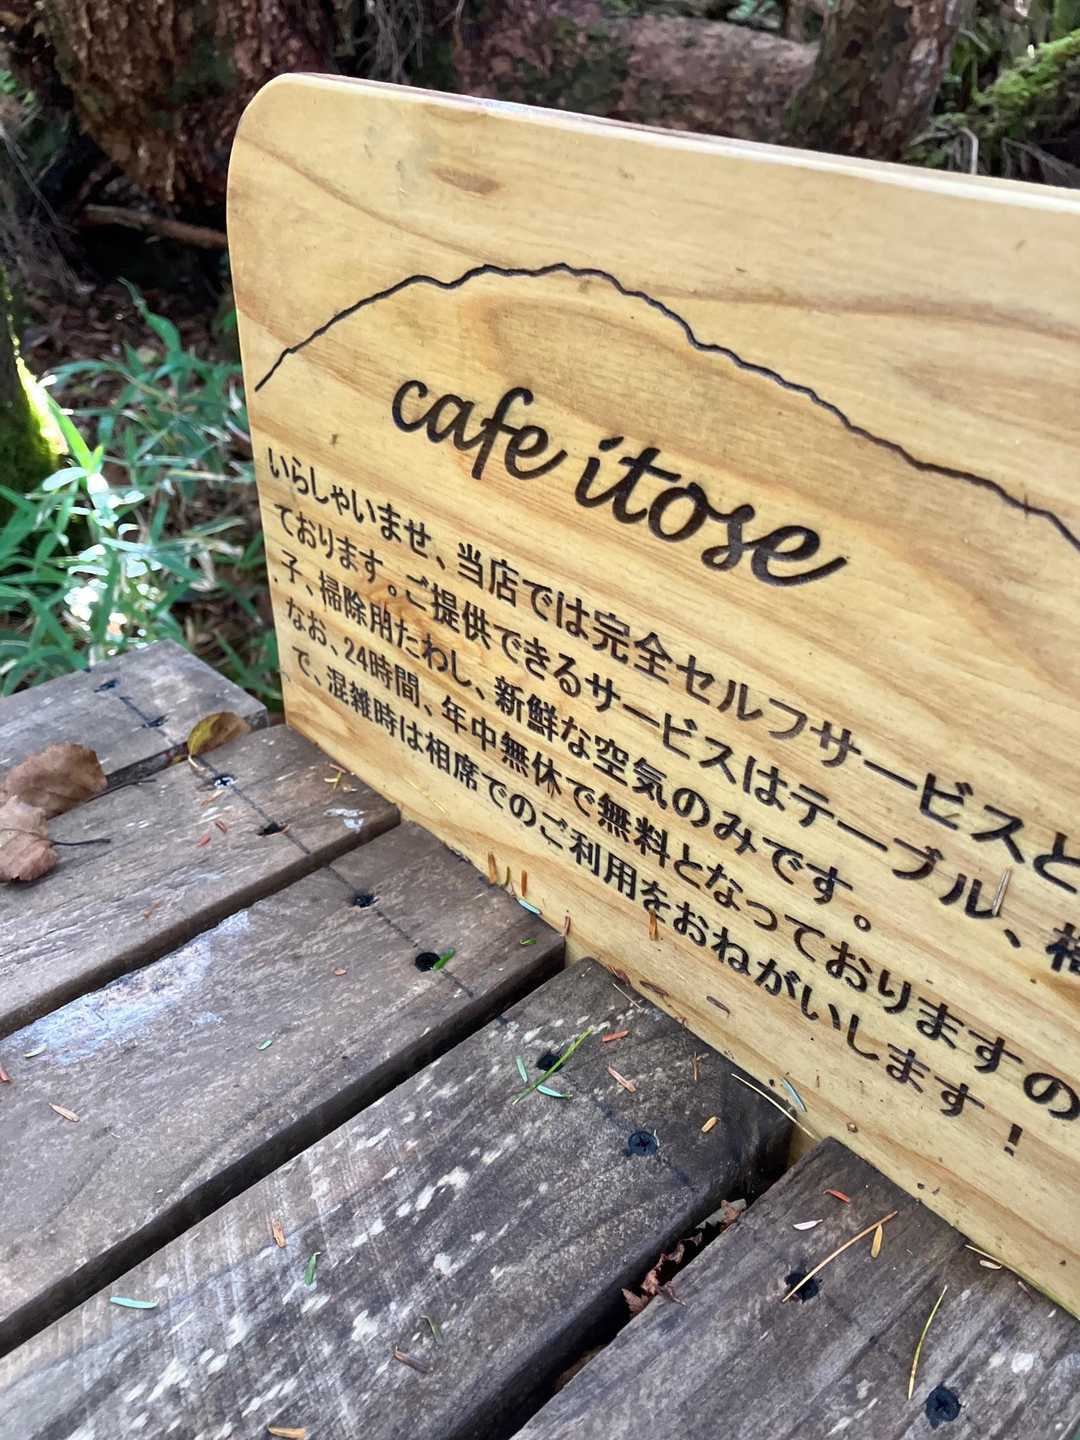 cafe itose
いらしゃいませ、当店では完全セルフサービスと
ております。ご提供できるサービスはテーブル、椅
子、掃除用たわし、新鮮な空気のみです。
なお、24時間、年中無休で無料となっておりますの
で、混雑時は相席でのご利用をおねがいします！